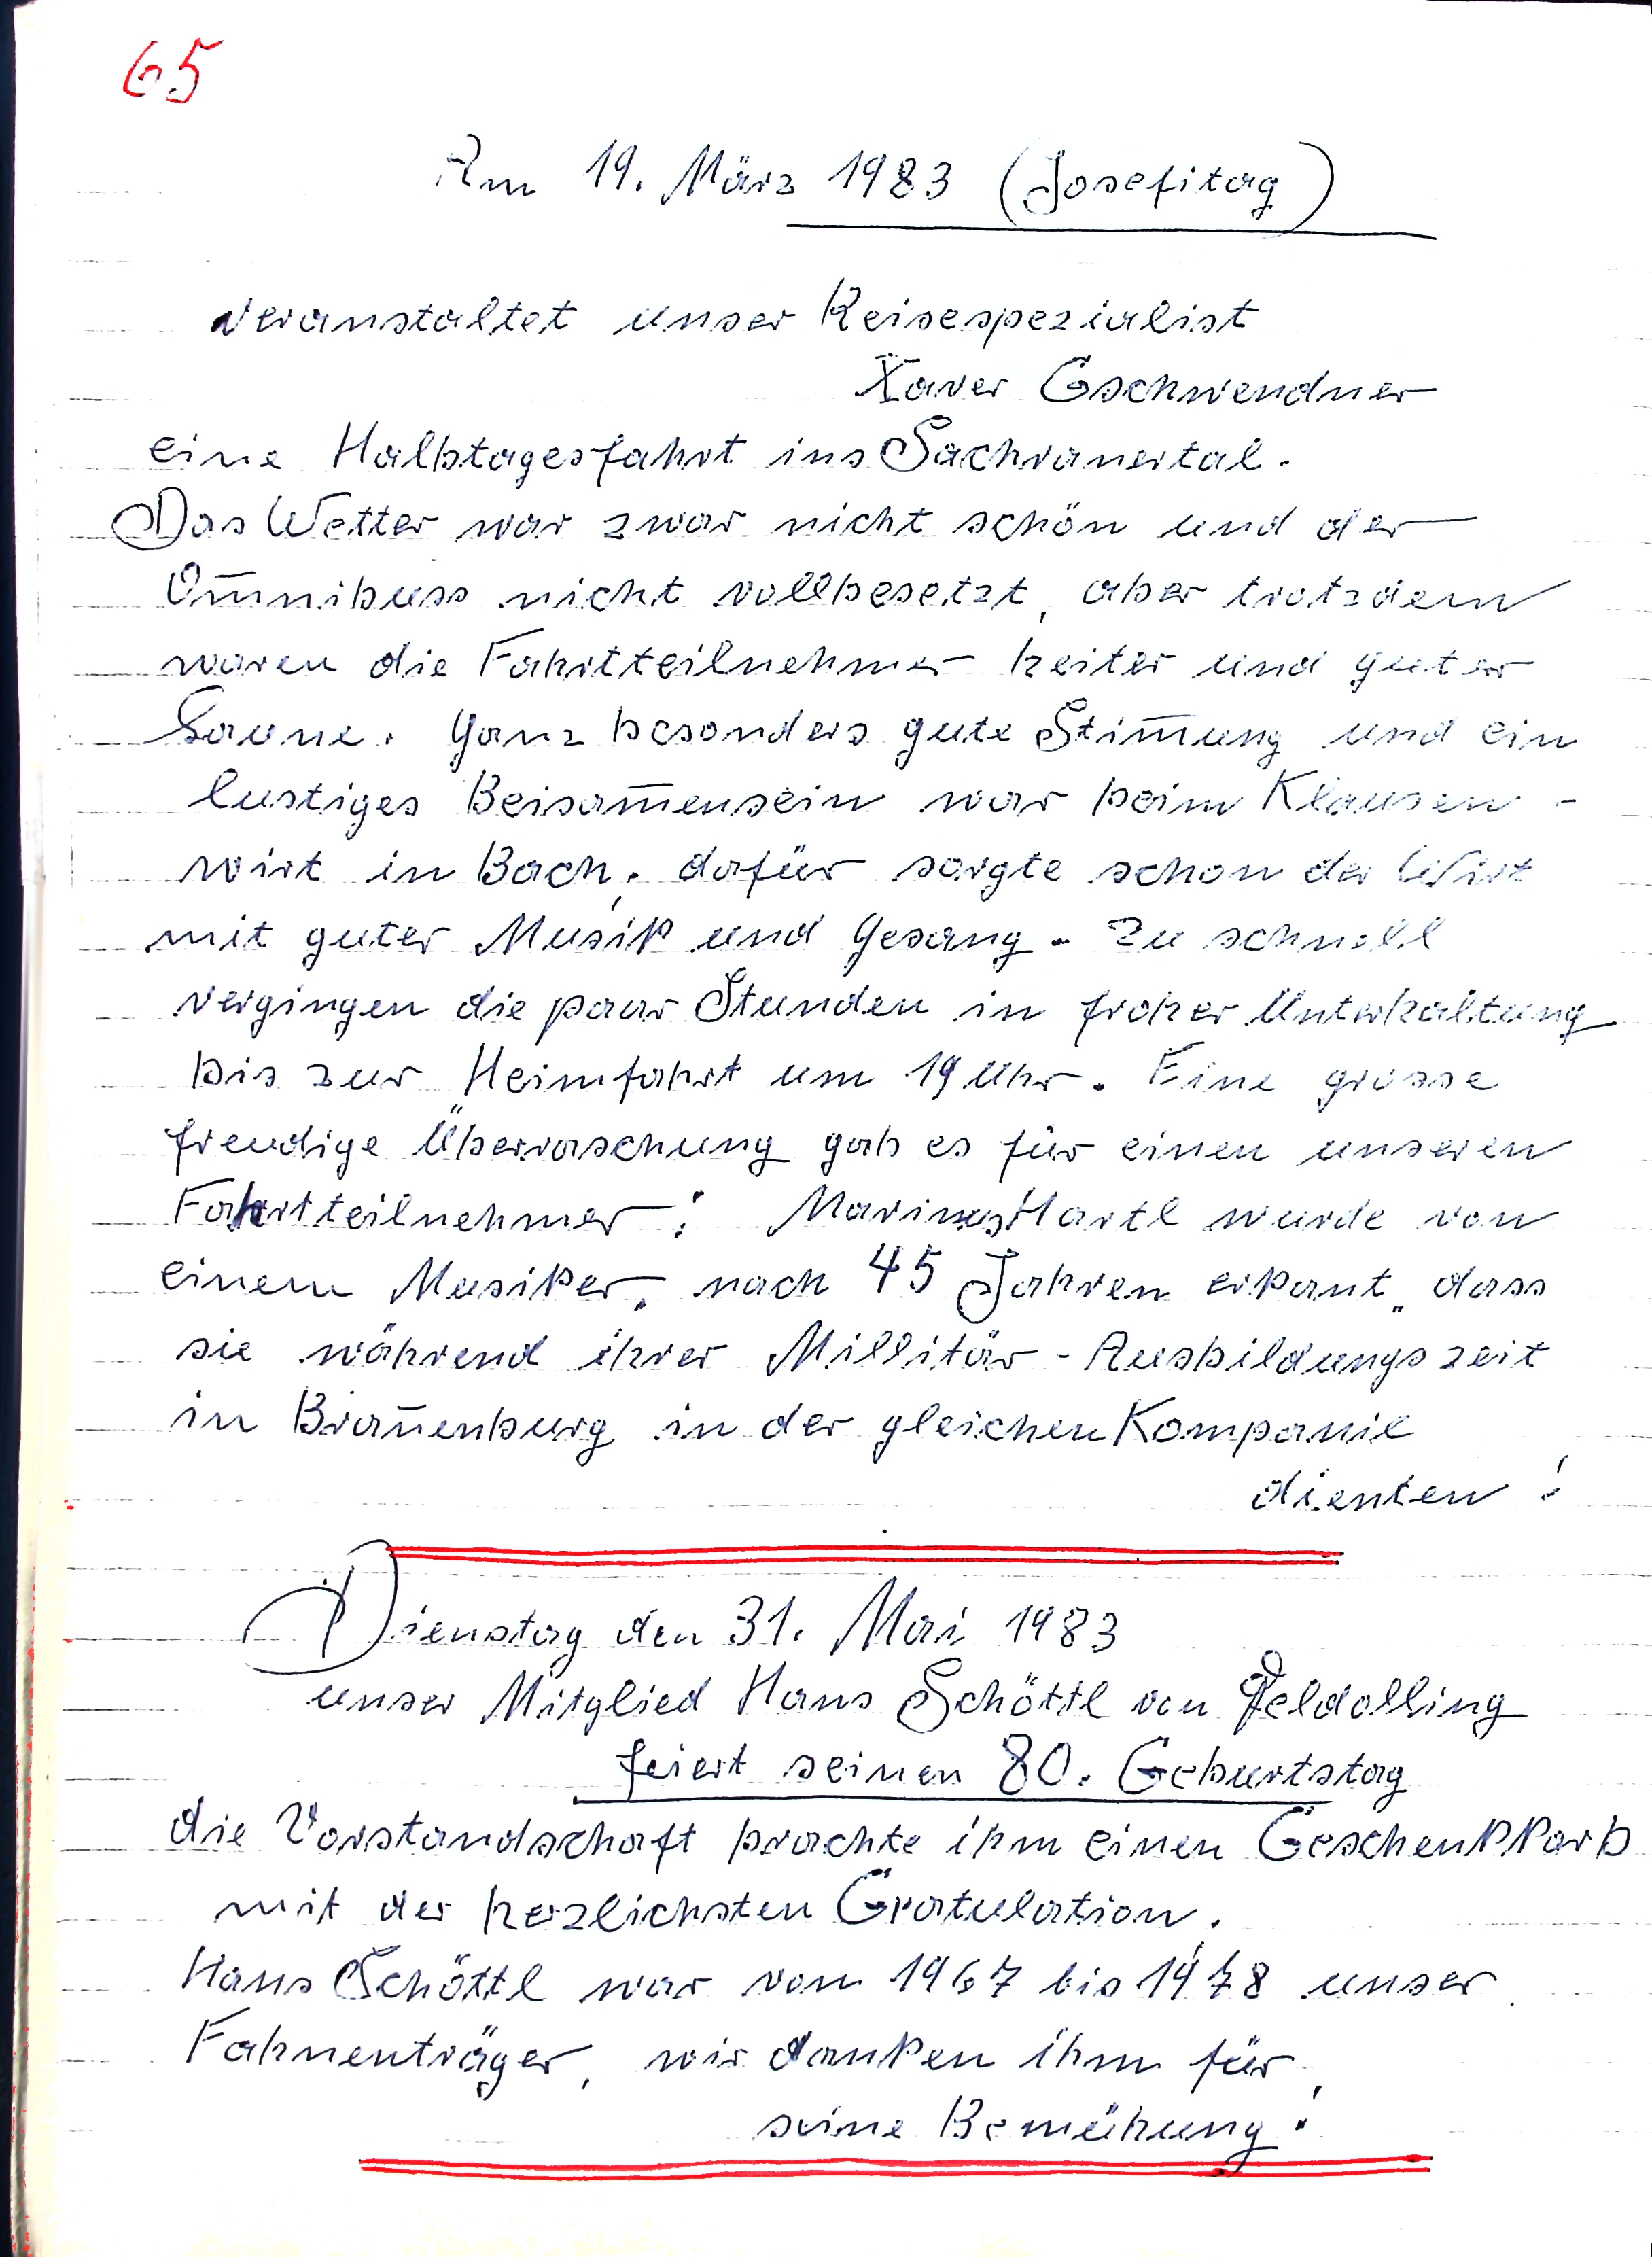 65
Am 19. März 1983 (Josefitag)
veranstaltet unser Reisespezialist
Xaver Gschwendner
eine Halbtagesfahrt ins Sachranertal.
Das Wetter war zwar nicht schön und der
Om̅nibuss nicht vollbesetzt, aber trotzdem
waren die Fahrtteilnehmer heiter und guter
Laune. Ganz besonders gute Stim̅ung und ein
lustiges Beisam̅ensein war beim Klausen-
wirt in Bach; dafür sorgte schon der Wirt
mit guter Musik und Gesang. Zu schnell
vergingen die paar Stunden in froher Unterhaltung
bis zur Heimfahrt um 19 Uhr. Eine grosse
freudige Überraschung gab es für einen unseren
Fahrtteilnehmer: Marinus Hartl wurde von
einem Musiker, nach 45 Jahren erkant, dass
sie während ihrer Millitär-Ausbildungszeit
in Bran̅enburg in der gleichen Kompanie
dienten!
Dienstag den 31. Mai 1983
unser Mitglied Hans Schöttl von Feldolling
feiert seinen 80. Geburtstag
die Vorstandschaft brachte ihm einen Geschenkkorb
mit der herzlichsten Gratulation.
Hans Schöttl war von 1967 bis 1978 unser
Fahnenträger, wir danken ihm für
seine Bemühung!